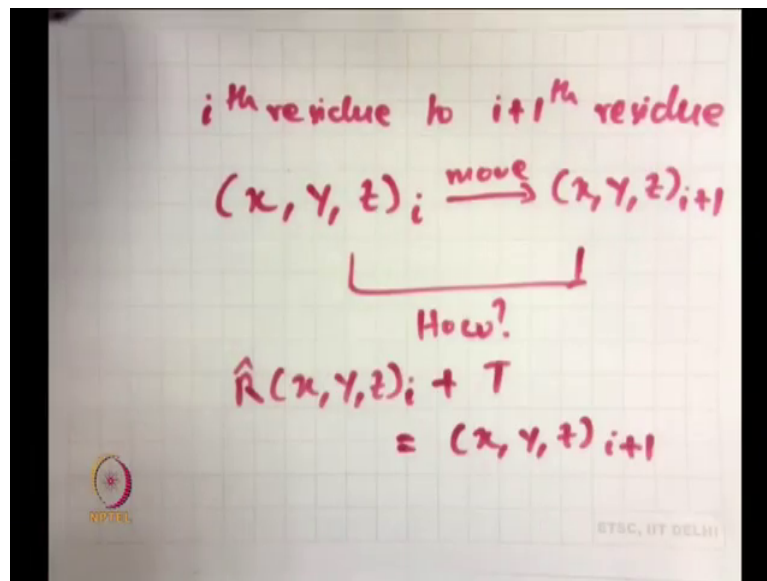 i th residue to i+1 th residue
(x, y, z) i move → (x, y, z) i+1
How?
R̂ (x, y, z) i + T
= (x, y, z) i+1
NPTEL
ETSC, IIT DELHI